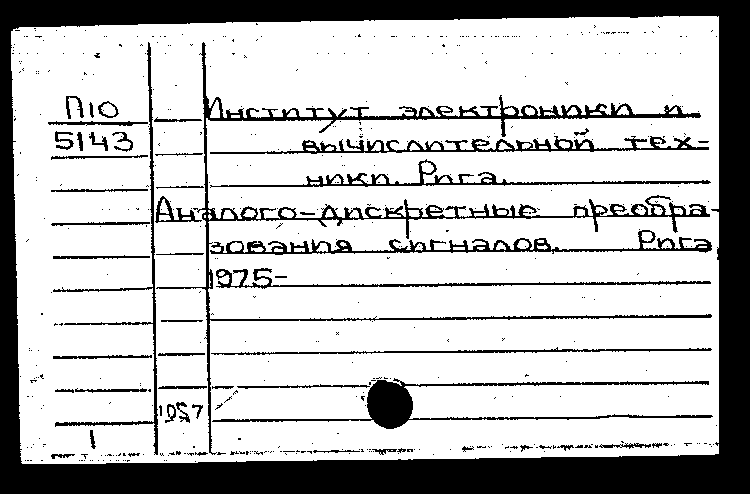 П10 Институт электроники и
5143 вычислительной тех-
ники. Рига.
Аналого-дискретные преобра-
зования сигналов. Рига
1975-
1